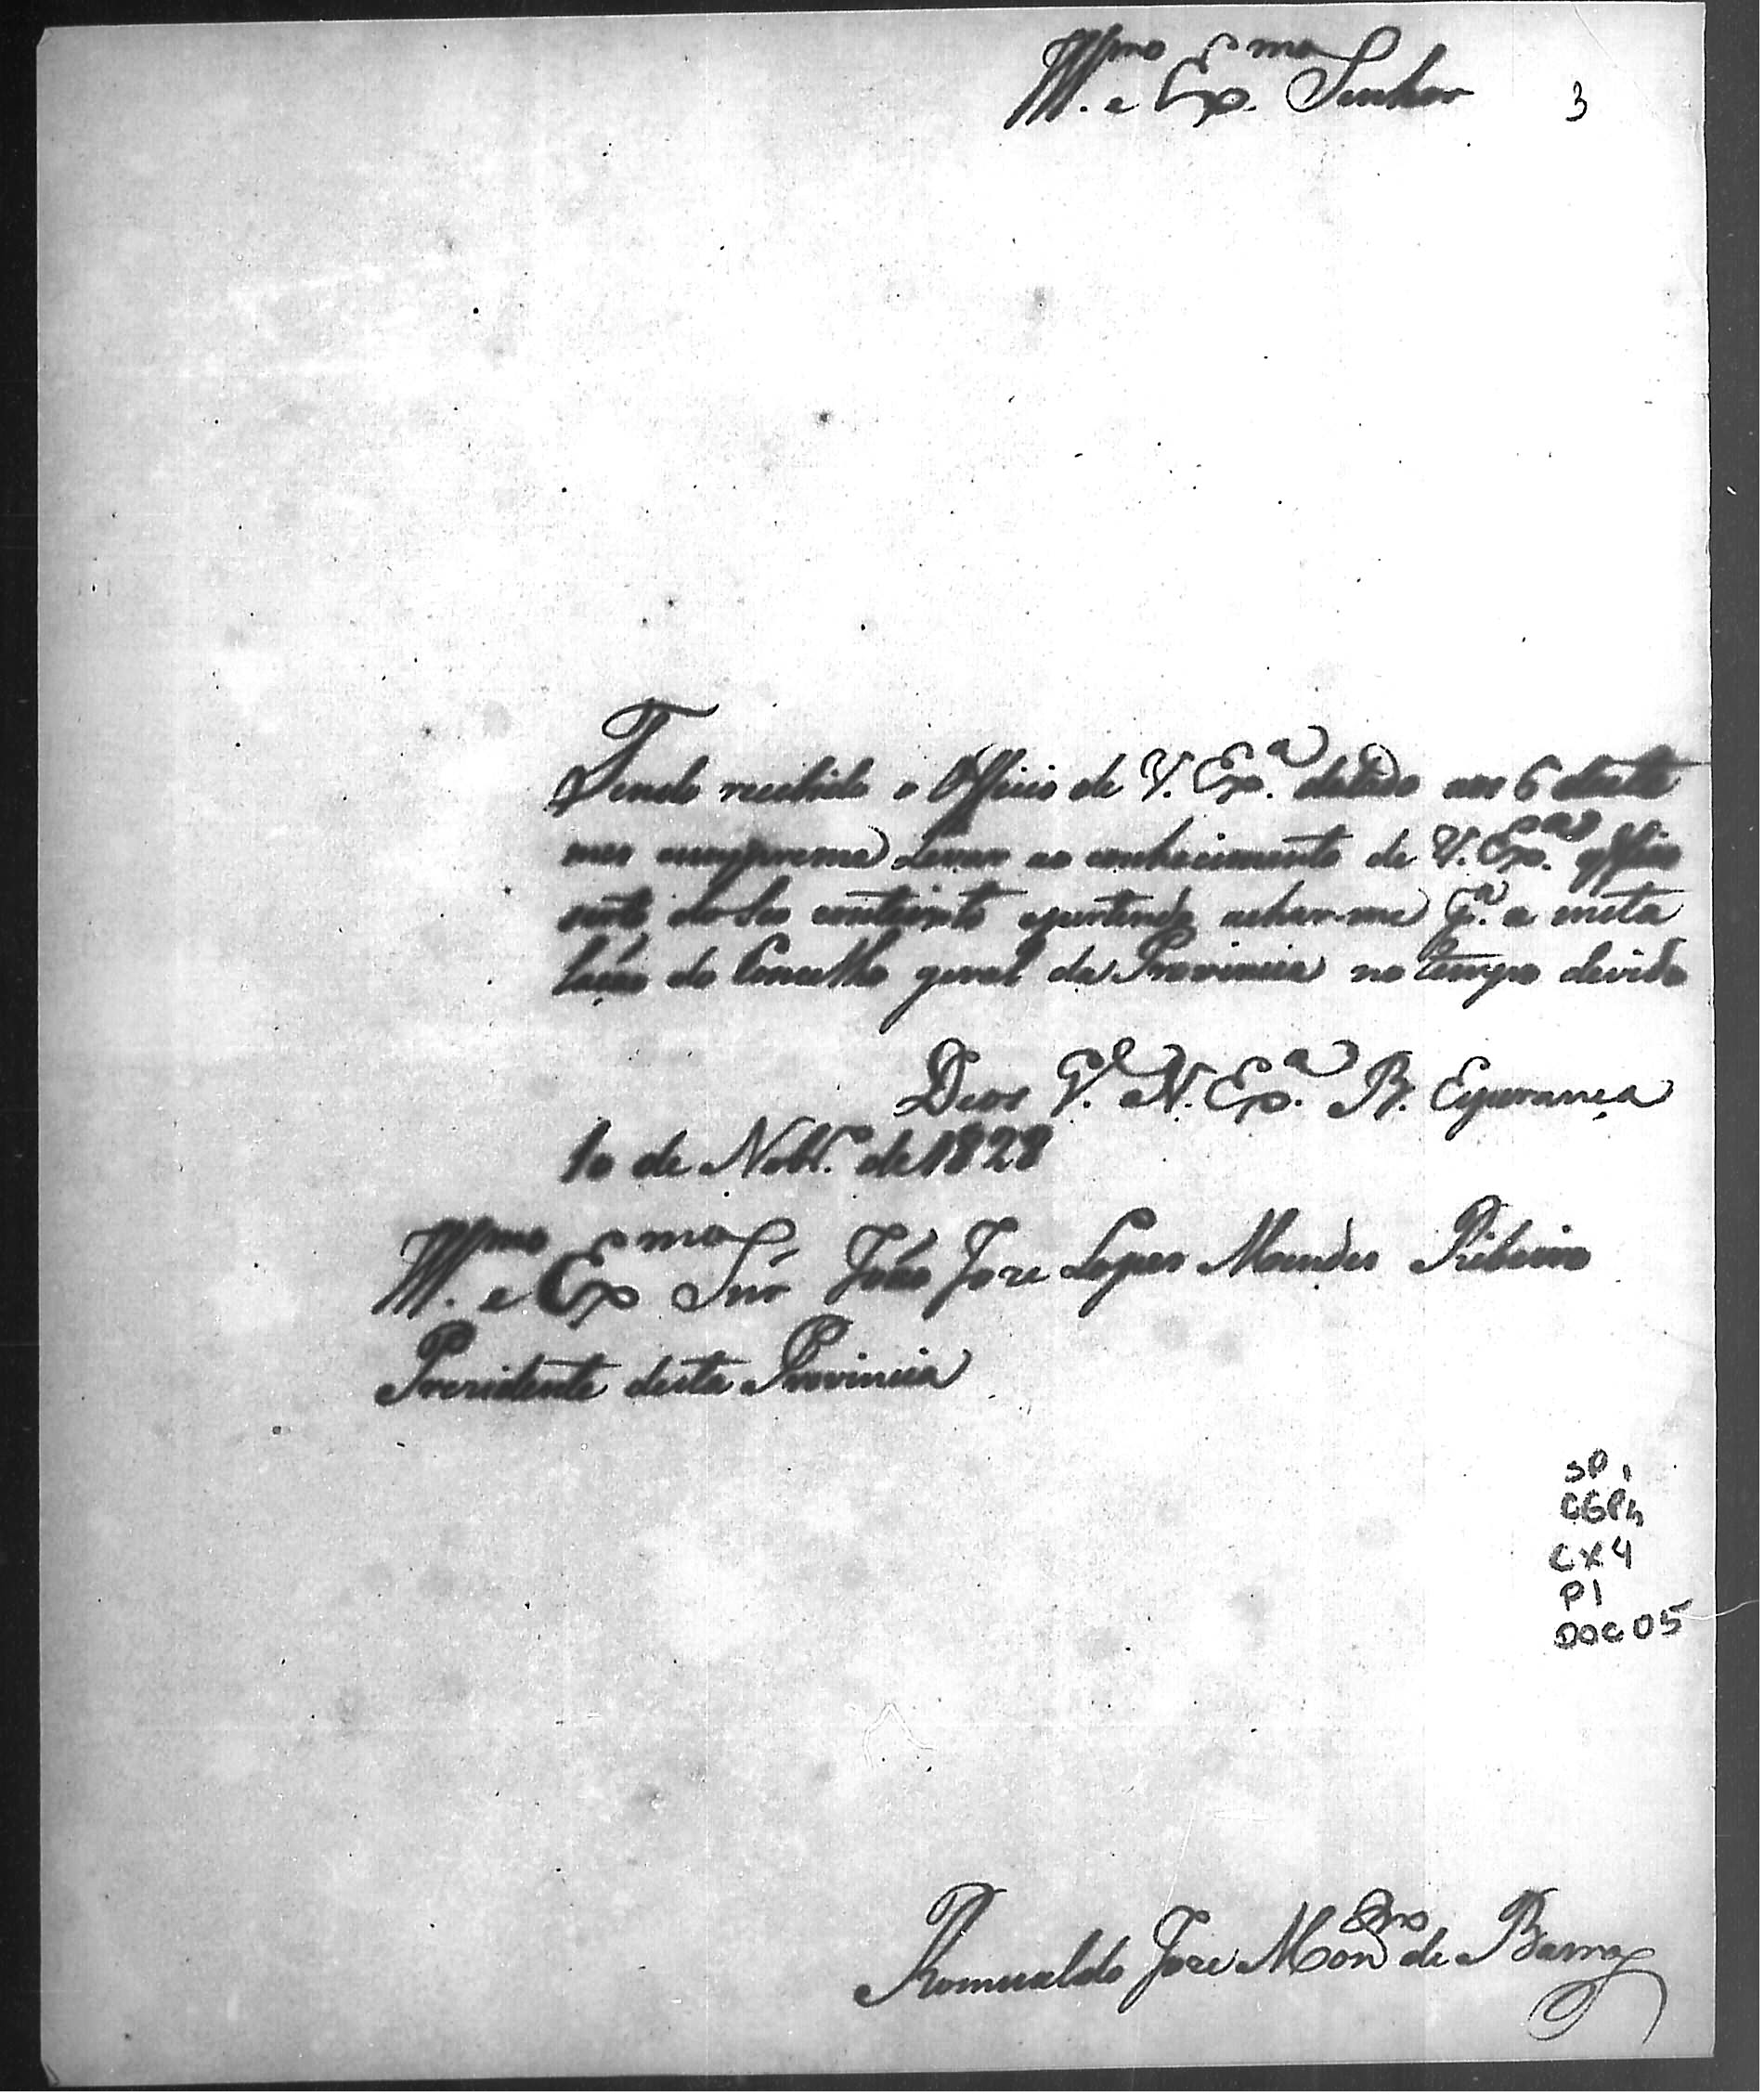 Illmo e Exmo Senhor
3
Tendo recebido o Officio de V. Exa. datado em 6 deste
mes cumpreme Levar ao conhecimento de V. Exa. q fico
serto do Seo contexto
achar-me pa. a insta
lação do Concelho geral da Provincia no tempo devido
Deos Ge. V. Exa. B. Esperança
10 de Nobro. de 1828
Illmo e Exmo Snr João Joze Lopes Mendes Ribeiro
Prezidente desta Provincia
SP1
CGP4
CX4
P1
DOC 05
Romualdo Joze Monro de Barros